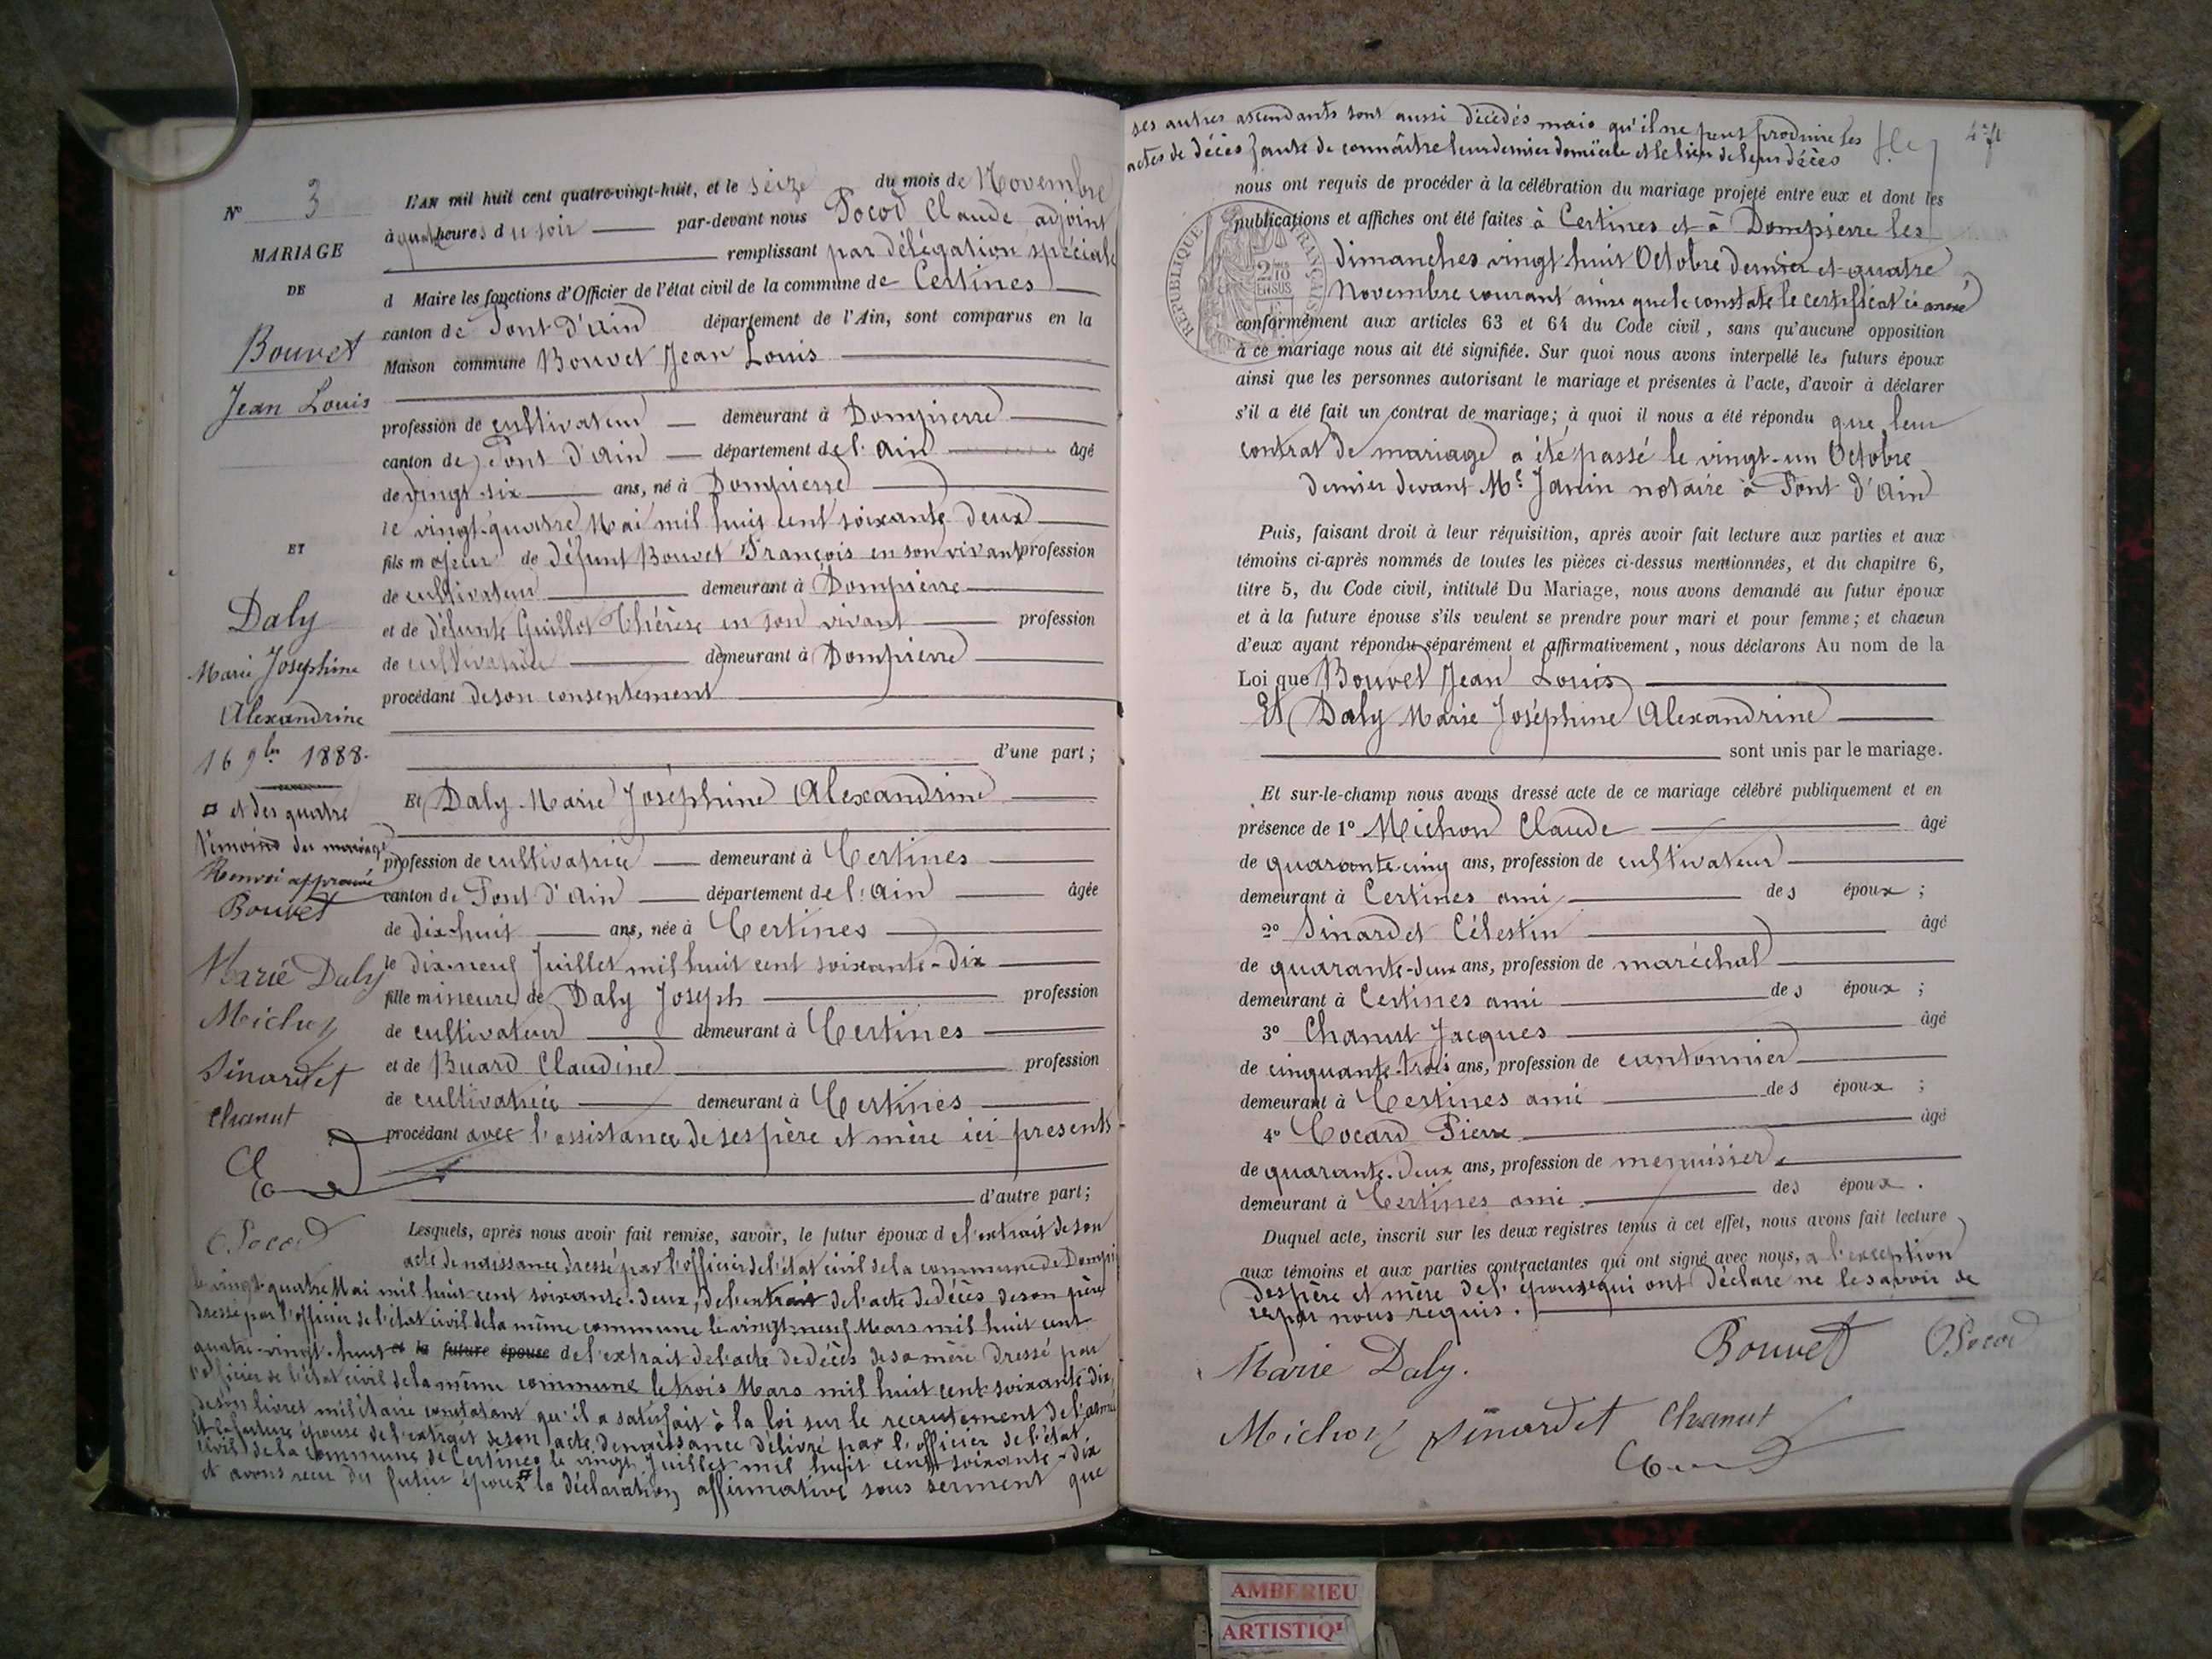 N° 3
MARIAGE
DE
Bouvet
Jean Louis
ET
Daly
Marie Josephine
Alexandrine
16 9bre 1888.
¤ et des quatre
témoins du mariage
Renvoi approuvé
Bouvet
Marie Daly
Michon
Sinardet
Chanut
Pocod
L'AN mil huit cent quatre-vingt-huit, et le seize du mois de Novembre
à quatre heures du soir par-devant nous Pocod Claude adjoint
remplissant par délégation spéciale
d Maire les fonctions d'Officier de l'état civil de la commune de Certines
canton de Pont d'Ain département de l'Ain, sont comparus en la
Maison commune Bouvet Jean Louis
profession de cultivateur demeurant à Dompierre
canton de Pont d'Ain département de l'Ain âgé
de vingt-six ans, né à Dompierre
le vingt-quatre Mai mil huit cent soixante deux
fils majeur de défunt Bouvet François en son vivant profession
de cultivateur demeurant à Dompierre
et de défunte Guillot Thérèse en son vivant profession
de cultivatrice demeurant à Dompierre
procédant de son consentement
d'une part;
Et Daly Marie Joséphine Alexandrine
profession de cultivatrice demeurant à Certines
canton de Pont d'Ain département de l'Ain âgée
de dix-huit ans, née à Certines
le dix-neuf Juillet mil huit cent soixante-dix
fille mineure de Daly Joseph profession
de cultivateur demeurant à Certines
et de Buard Claudine profession
de cultivatrice demeurant à Certines
procédant avec l'assistance de ses père et mère ici présents
d'autre part;
Lesquels, après nous avoir fait remise, savoir, le futur époux de l'extrait de son
acte de naissance dressé par l'officier de l'état civil de la commune de Dompi
le vingt-quatre Mai mil huit cent soixante-deux, de l'extrait de l'acte de décès de son père
dressé par l'officier de l'état civil de la même commune le vingt-neuf Mars mil huit cent
quatre-vingt-huit et la future épouse de l'extrait de l'acte de décès de sa mère dressé par
l'officier de l'état civil de la même commune le trois Mars mil huit cent soixante-dix,
de son livret militaire constatant qu'il a satisfait à la loi sur le recrutement de l'armé
Et la future épouse de l'extrait de son acte de naissance délivré par l'officier de l'état
civil de la commune de Certines le vingt Juillet mil huit cent soixante-dix
et avons reçu du futur époux ¤ la déclaration affirmative sous serment que
ses autres ascendants sont aussi décédés mais qu'il ne peut produire les
actes de décès faute de connaître leur dernier domicile et le lieu de leur décès
nous ont requis de procéder à la célébration du mariage projeté entre eux et dont les
publications et affiches ont été faites à Certines et à Dompierre les
dimanches vingt-huit Octobre dernier et quatre
Novembre courant ainsi que le constate le certificat ci annexé
conformément aux articles 63 et 64 du Code civil, sans qu'aucune opposition
à ce mariage nous ait été signifiée. Sur quoi nous avons interpellé les futurs époux
ainsi que les personnes autorisant le mariage et présentes à l'acte, d'avoir à déclarer
s'il a été fait un contrat de mariage; à quoi il nous a été répondu que leur
contrat de mariage a été passé le vingt-un Octobre
dernier devant Me Janin notaire à Pont d'Ain
Puis, faisant droit à leur réquisition, après avoir fait lecture aux parties et aux
témoins ci-après nommés de toutes les pièces ci-dessus mentionnées, et du chapitre 6,
titre 5, du Code civil, intitulé Du Mariage, nous avons demandé au futur époux
et à la future épouse s'ils veulent se prendre pour mari et pour femme; et chacun
d'eux ayant répondu séparément et affirmativement, nous déclarons Au nom de la
Loi que Bouvet Jean Louis
Et Daly Marie Joséphine Alexandrine
sont unis par le mariage.
Et sur-le-champ nous avons dressé acte de ce mariage célébré publiquement et en
présence de 1° Michon Claude âgé
de quarante-cinq ans, profession de cultivateur
demeurant à Certines ami des époux;
2° Sinardet Célestin âgé
de quarante-deux ans, profession de maréchal
demeurant à Certines ami des époux;
3° Chanut Jacques âgé
de cinquante-trois ans, profession de cantonnier
demeurant à Certines ami des époux;
4° Cocard Pierre âgé
de quarante-deux ans, profession de menuisier
demeurant à Certines ami des époux.
Duquel acte, inscrit sur les deux registres tenus à cet effet, nous avons fait lecture
aux témoins et aux parties contractantes qui ont signé avec nous, à l'exception
des père et mère de l'épouse qui ont déclaré ne le savoir de
ce par nous requis.
Bouvet Pocod
Marie Daly.
Michon Sinardet Chanut
RÉPUBLIQUE FRANÇAISE
2/10 EN SUS
AMBERIEU
ARTISTIQ